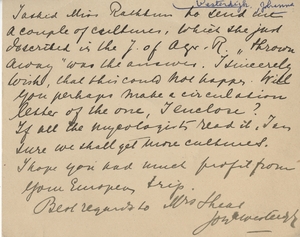 Westerdijk, Johanna
I asked Miss Rathbun to send me
a couple of cultures, which she just
described in the J. of Agr. R. "thrown
away" was the answer. I sincerely
wish, that this could not happen. Will
you perhaps make a circulation
letter of the one, I enclose?
If all the mycologists read it, I am
sure we shall get more cultures.
I hope you had much profit from
your European trip.
Best regards to Mrs Shear
Joh. Westerdijk